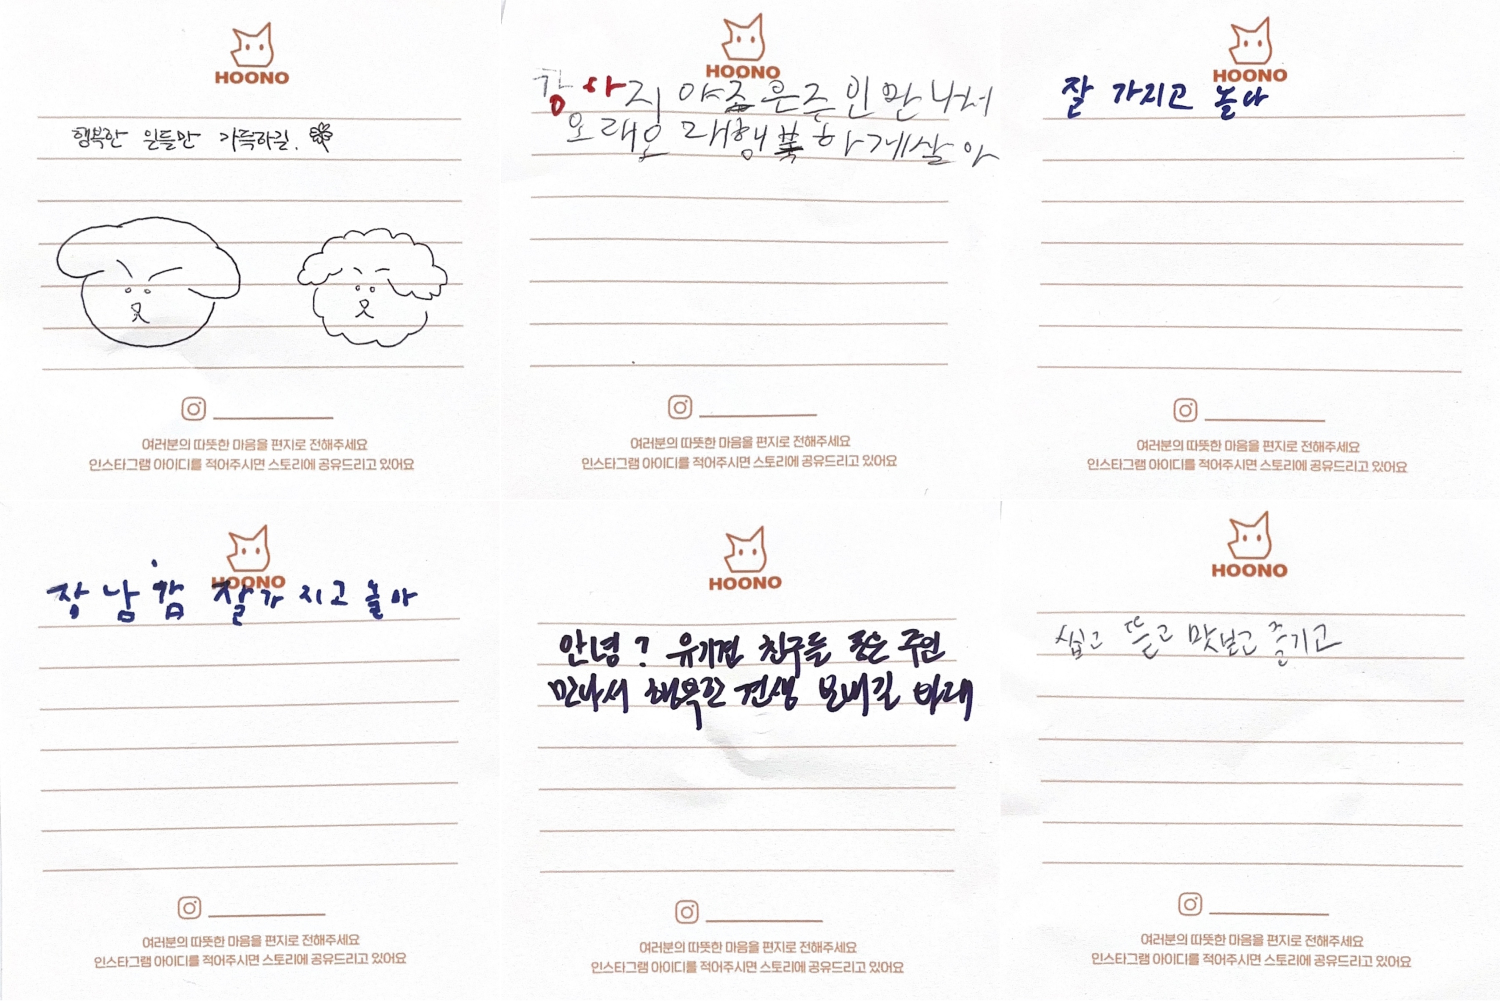 HOONO
행복한 일들만 가득하길.
여러분의 따뜻한 마음을 편지로 전해주세요
인스타그램 아이디를 적어주시면 스토리에 공유드리고 있어요
HOONO
강아지야좋은주인만나서
오래오래행복하게살아
여러분의 따뜻한 마음을 편지로 전해주세요
인스타그램 아이디를 적어주시면 스토리에 공유드리고 있어요
HOONO
잘 가지고 놀아
여러분의 따뜻한 마음을 편지로 전해주세요
인스타그램 아이디를 적어주시면 스토리에 공유드리고 있어요
HOONO
장남감 잘가지고 놀아
여러분의 따뜻한 마음을 편지로 전해주세요
인스타그램 아이디를 적어주시면 스토리에 공유드리고 있어요
HOONO
안녕? 유기견 친구들 좋은 주인
만나서 행복한 견생 보내길 바래
여러분의 따뜻한 마음을 편지로 전해주세요
인스타그램 아이디를 적어주시면 스토리에 공유드리고 있어요
HOONO
씹고 뜯고 맛보고 즐기고
여러분의 따뜻한 마음을 편지로 전해주세요
인스타그램 아이디를 적어주시면 스토리에 공유드리고 있어요